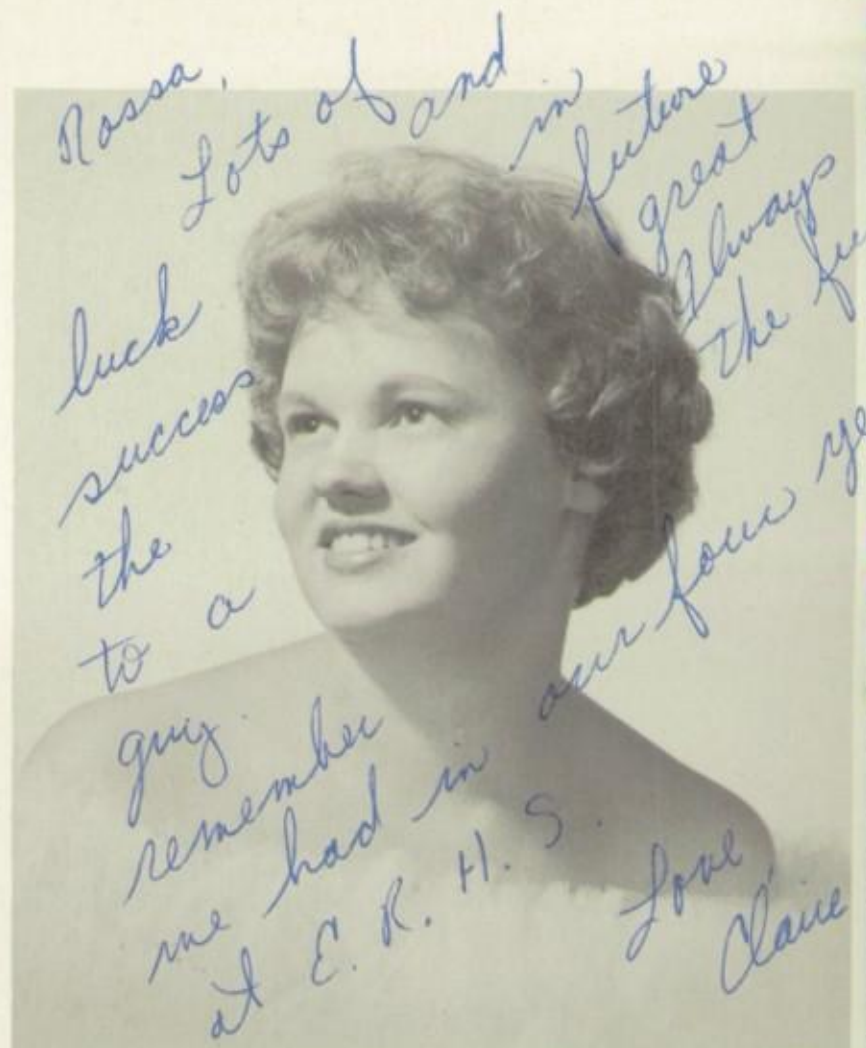 Rossa,
Lots of
luck and
success in
the future
to a great
guy. Always
remember the fu
we had in our four ye
at E. R. H. S.
Love,
Claire